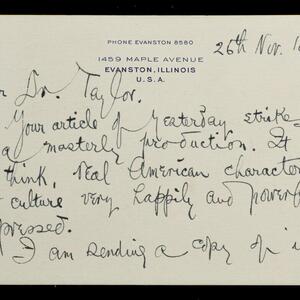 PHONE EVANSTON 8580
1459 MAPLE AVENUE
EVANSTON, ILLINOIS
U.S.A.
26th Nov.
Dr. Taylor.
Your article of yesterday strike
a masterly production. It
think, real American character
culture very happily and powerf
pressed.
I am sending a copy of i